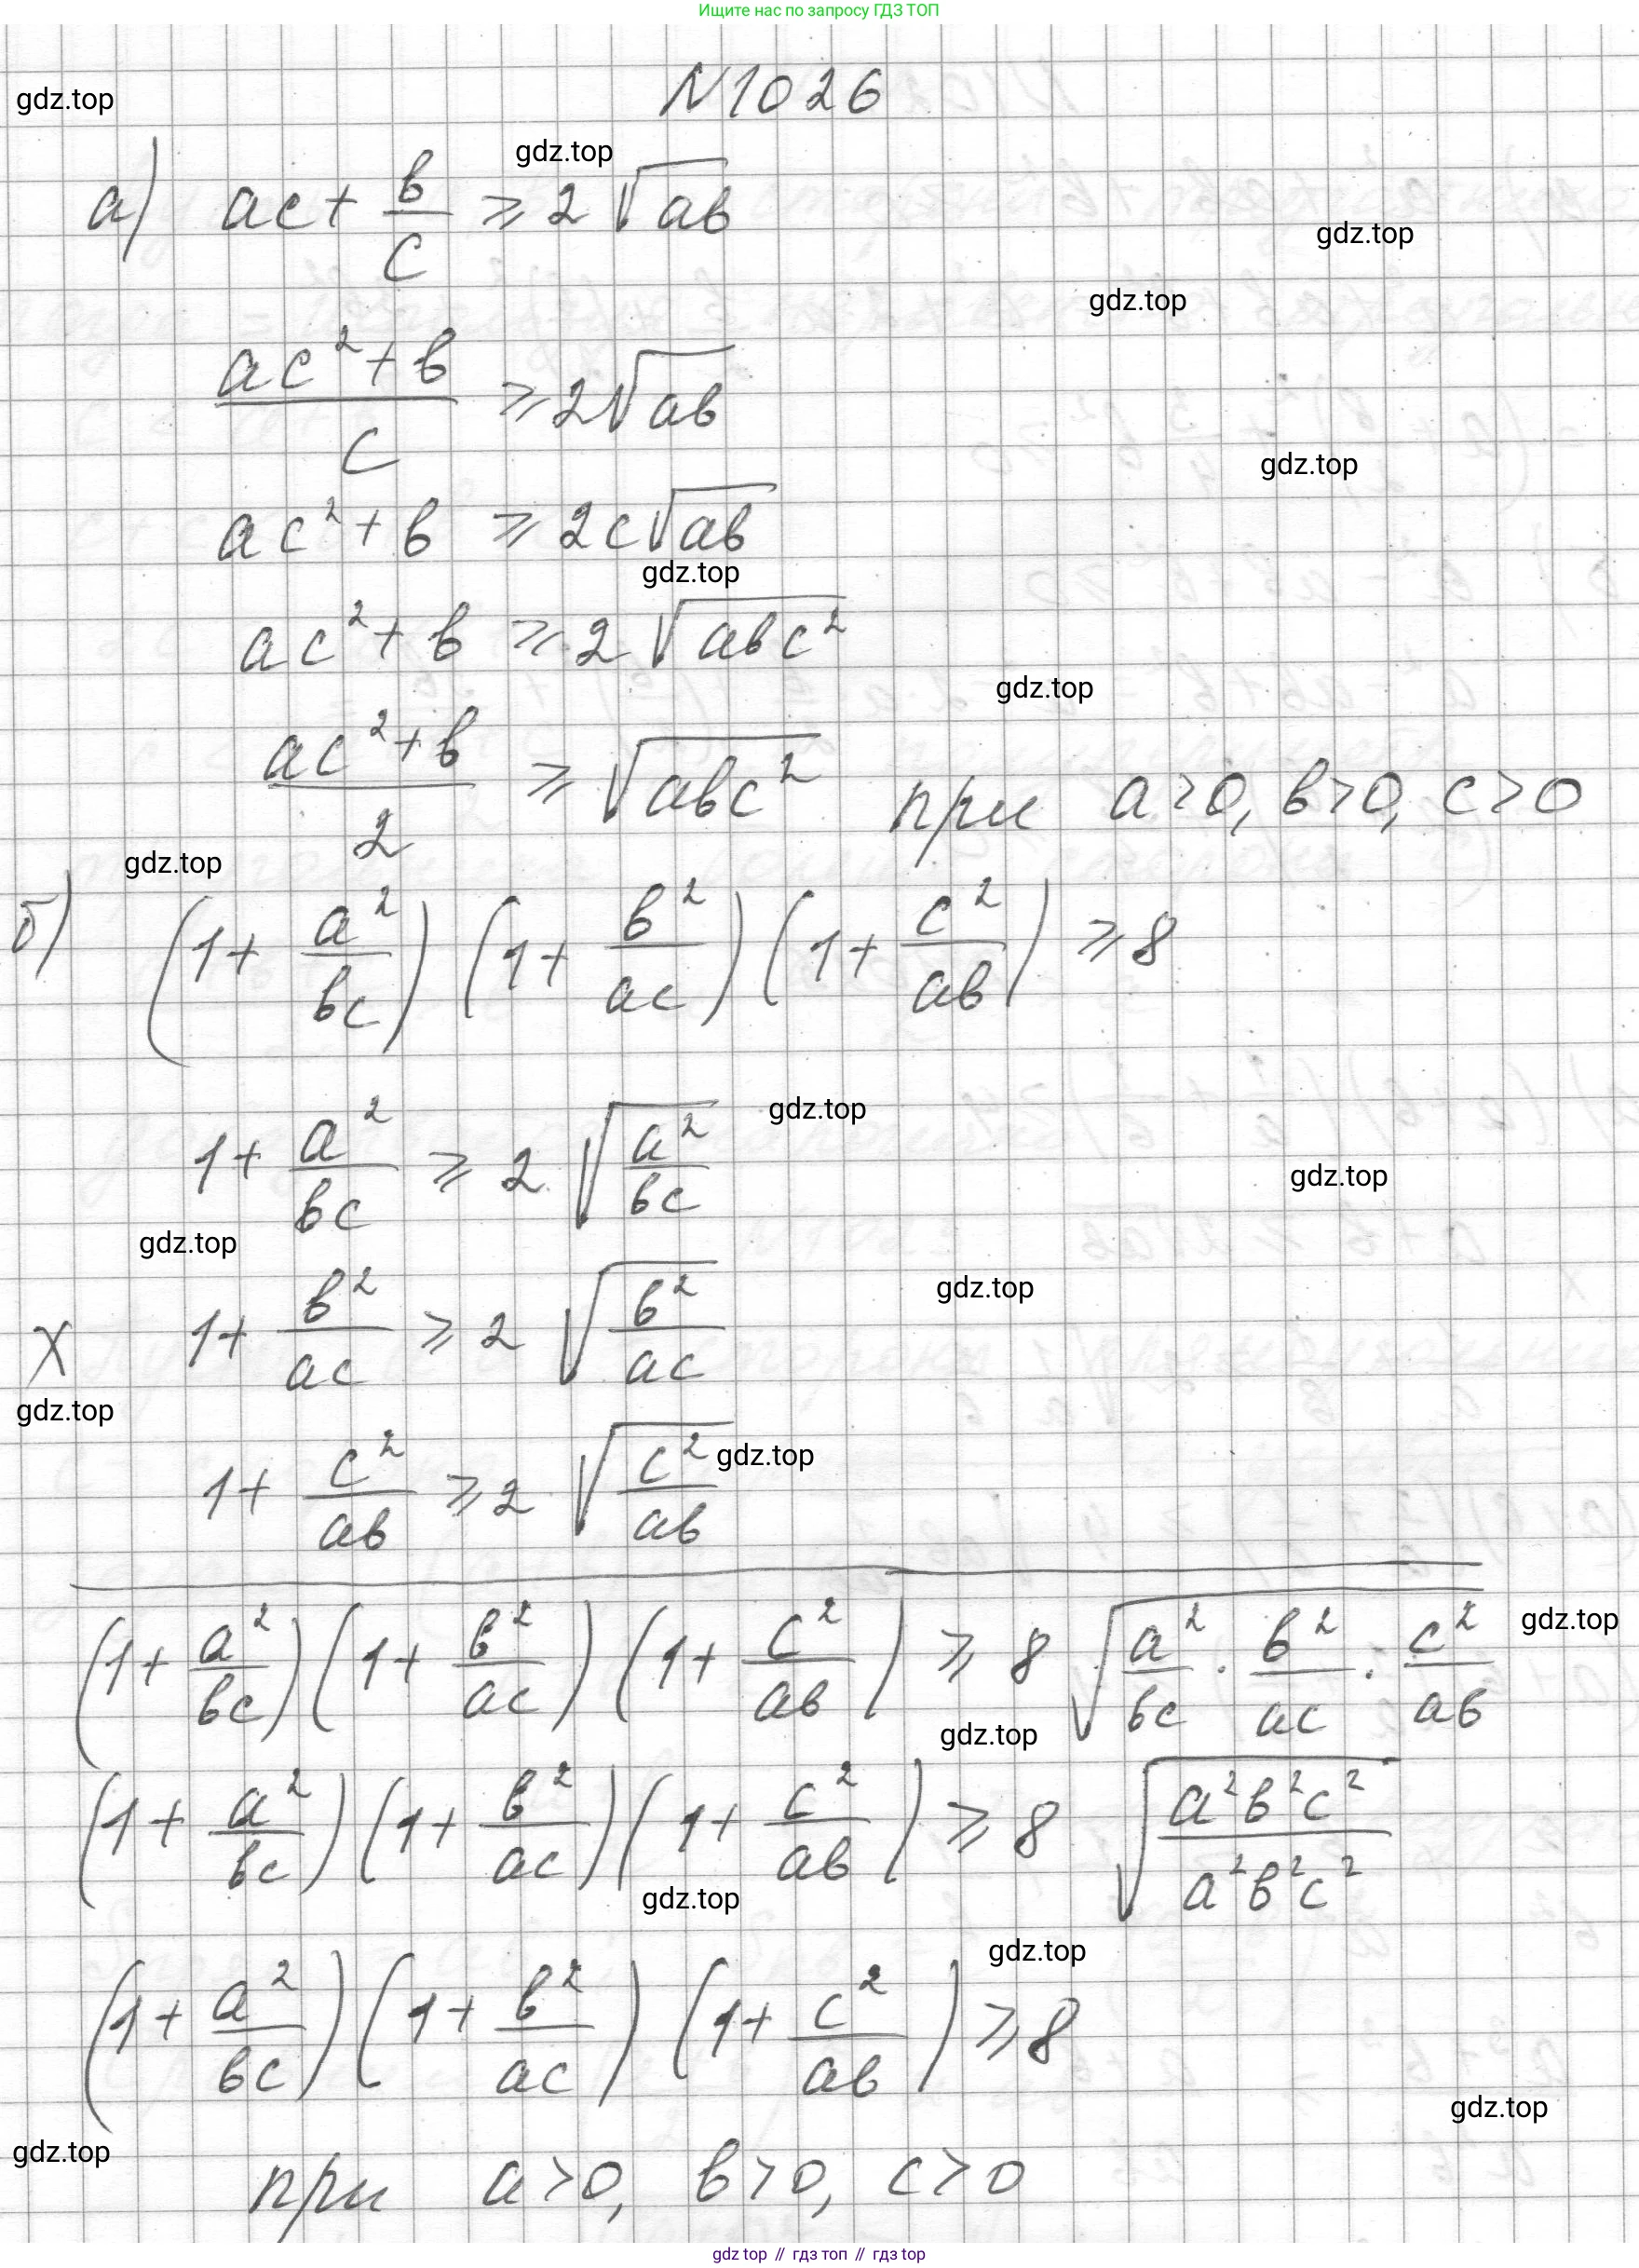 Ищите нас по запросу ГДЗ ТОП
N1026
gdz.top
gdz.top
а) ac + в/c ⩾ 2√(aв)
gdz.top
gdz.top
(ac² + в)/c ⩾ 2√(aв)
gdz.top
ac² + в ⩾ 2c√(aв)
gdz.top
ac² + в ⩾ 2√(aвc²)
gdz.top
(ac² + в)/2 ⩾ √(aвc²) при a>0, в>0, c>0
gdz.top
б) (1 + a²/вc)(1 + в²/ac)(1 + c²/aв) ⩾ 8
gdz.top
1 + a²/вc ⩾ 2√(a²/вc)
gdz.top
gdz.top
gdz.top
X 1 + в²/ac ⩾ 2√(в²/ac)
gdz.top
gdz.top
1 + c²/aв ⩾ 2√(c²/aв)
gdz.top
(1 + a²/вc)(1 + в²/ac)(1 + c²/aв) ⩾ 8√(a²/вc · в²/ac · c²/aв)
gdz.top
(1 + a²/вc)(1 + в²/ac)(1 + c²/aв) ⩾ 8√(a²в²c²/a²в²c²)
gdz.top
gdz.top
(1 + a²/вc)(1 + в²/ac)(1 + c²/aв) ⩾ 8
gdz.top
gdz.top
при a>0, в>0, c>0
gdz top // гдз топ // гдз top